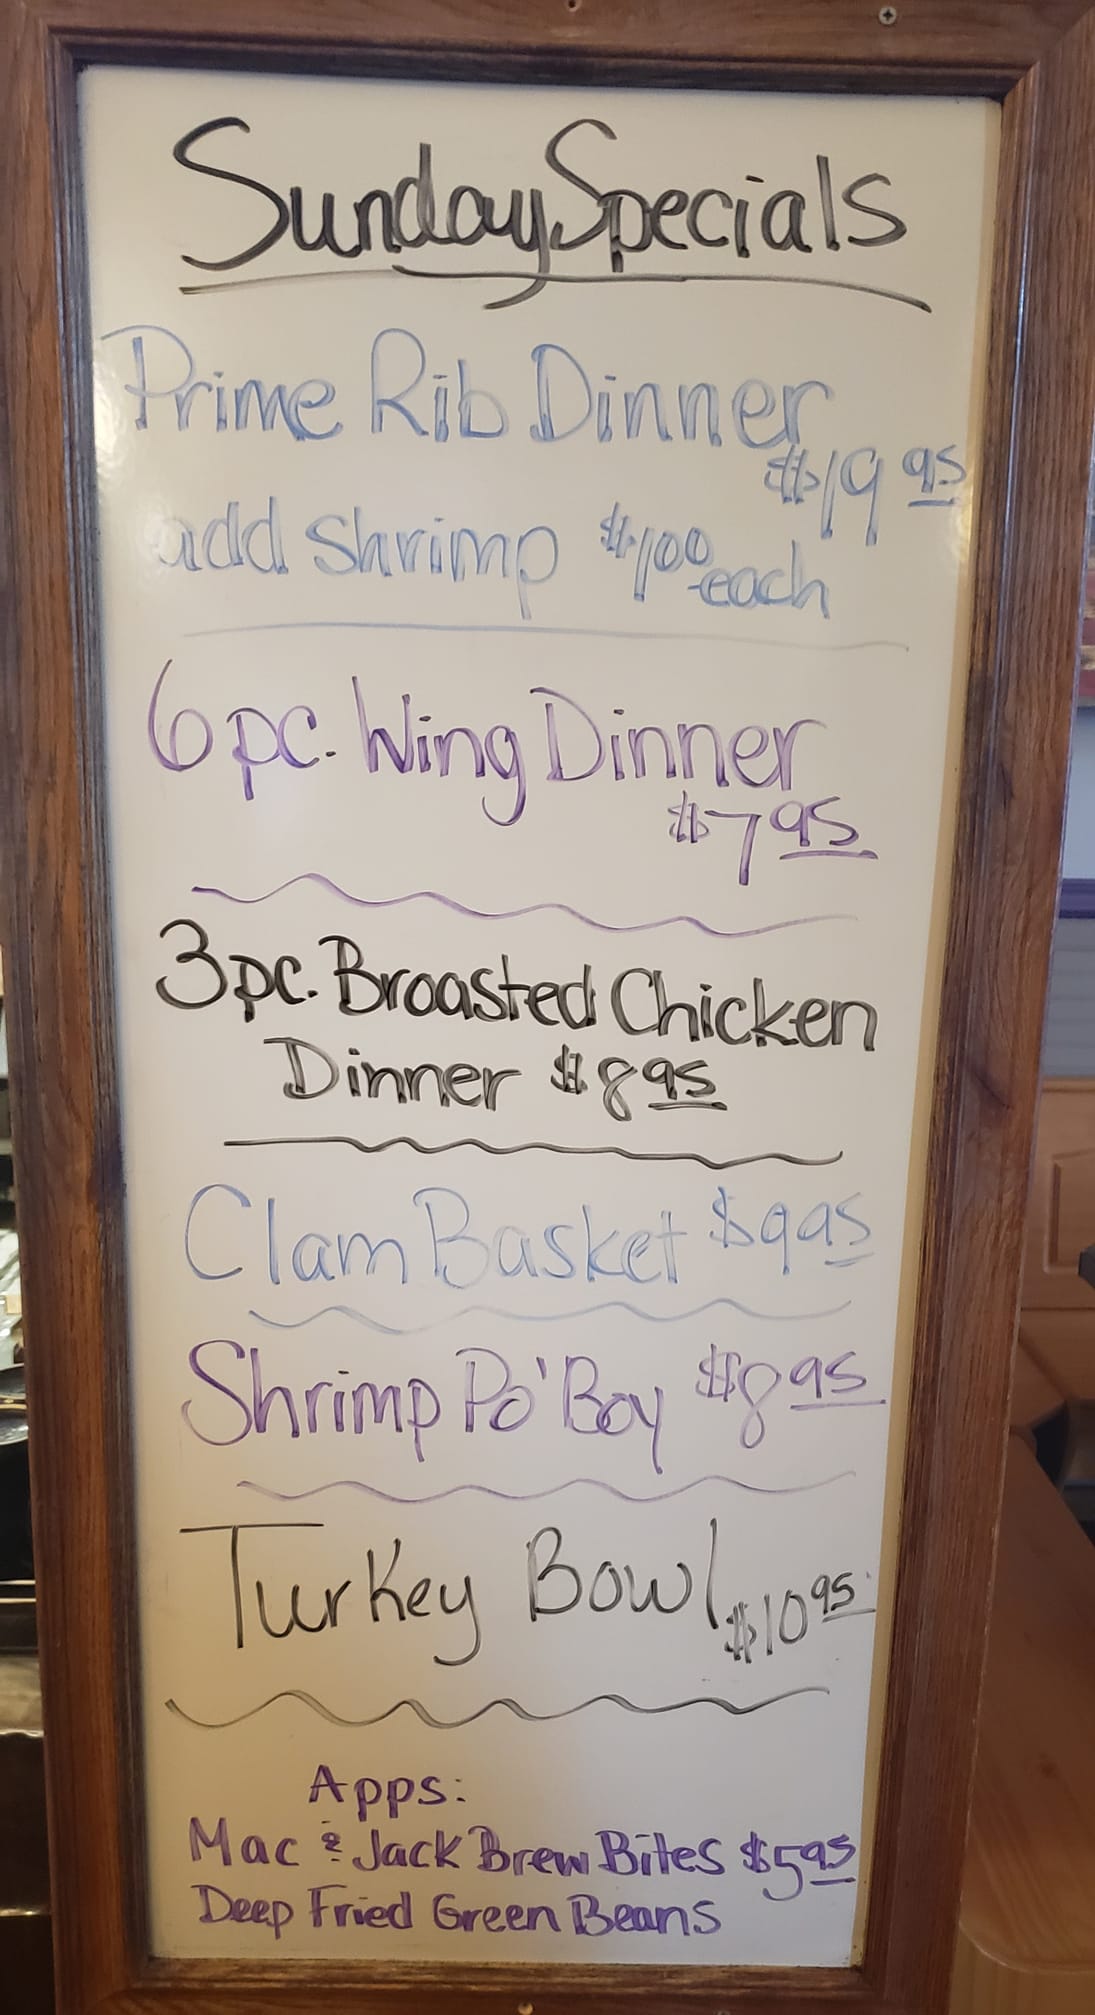 Sunday Specials
Prime Rib Dinner
$19 95
add shrimp $1 00 each
6 pc. Wing Dinner
$7 95
3 pc. Broasted Chicken
Dinner $8 95
Clam Basket $9 95
Shrimp Po'Boy $8 95
Turkey Bowl $10 95
Apps:
Mac & Jack Brew Bites $5 95
Deep Fried Green Beans